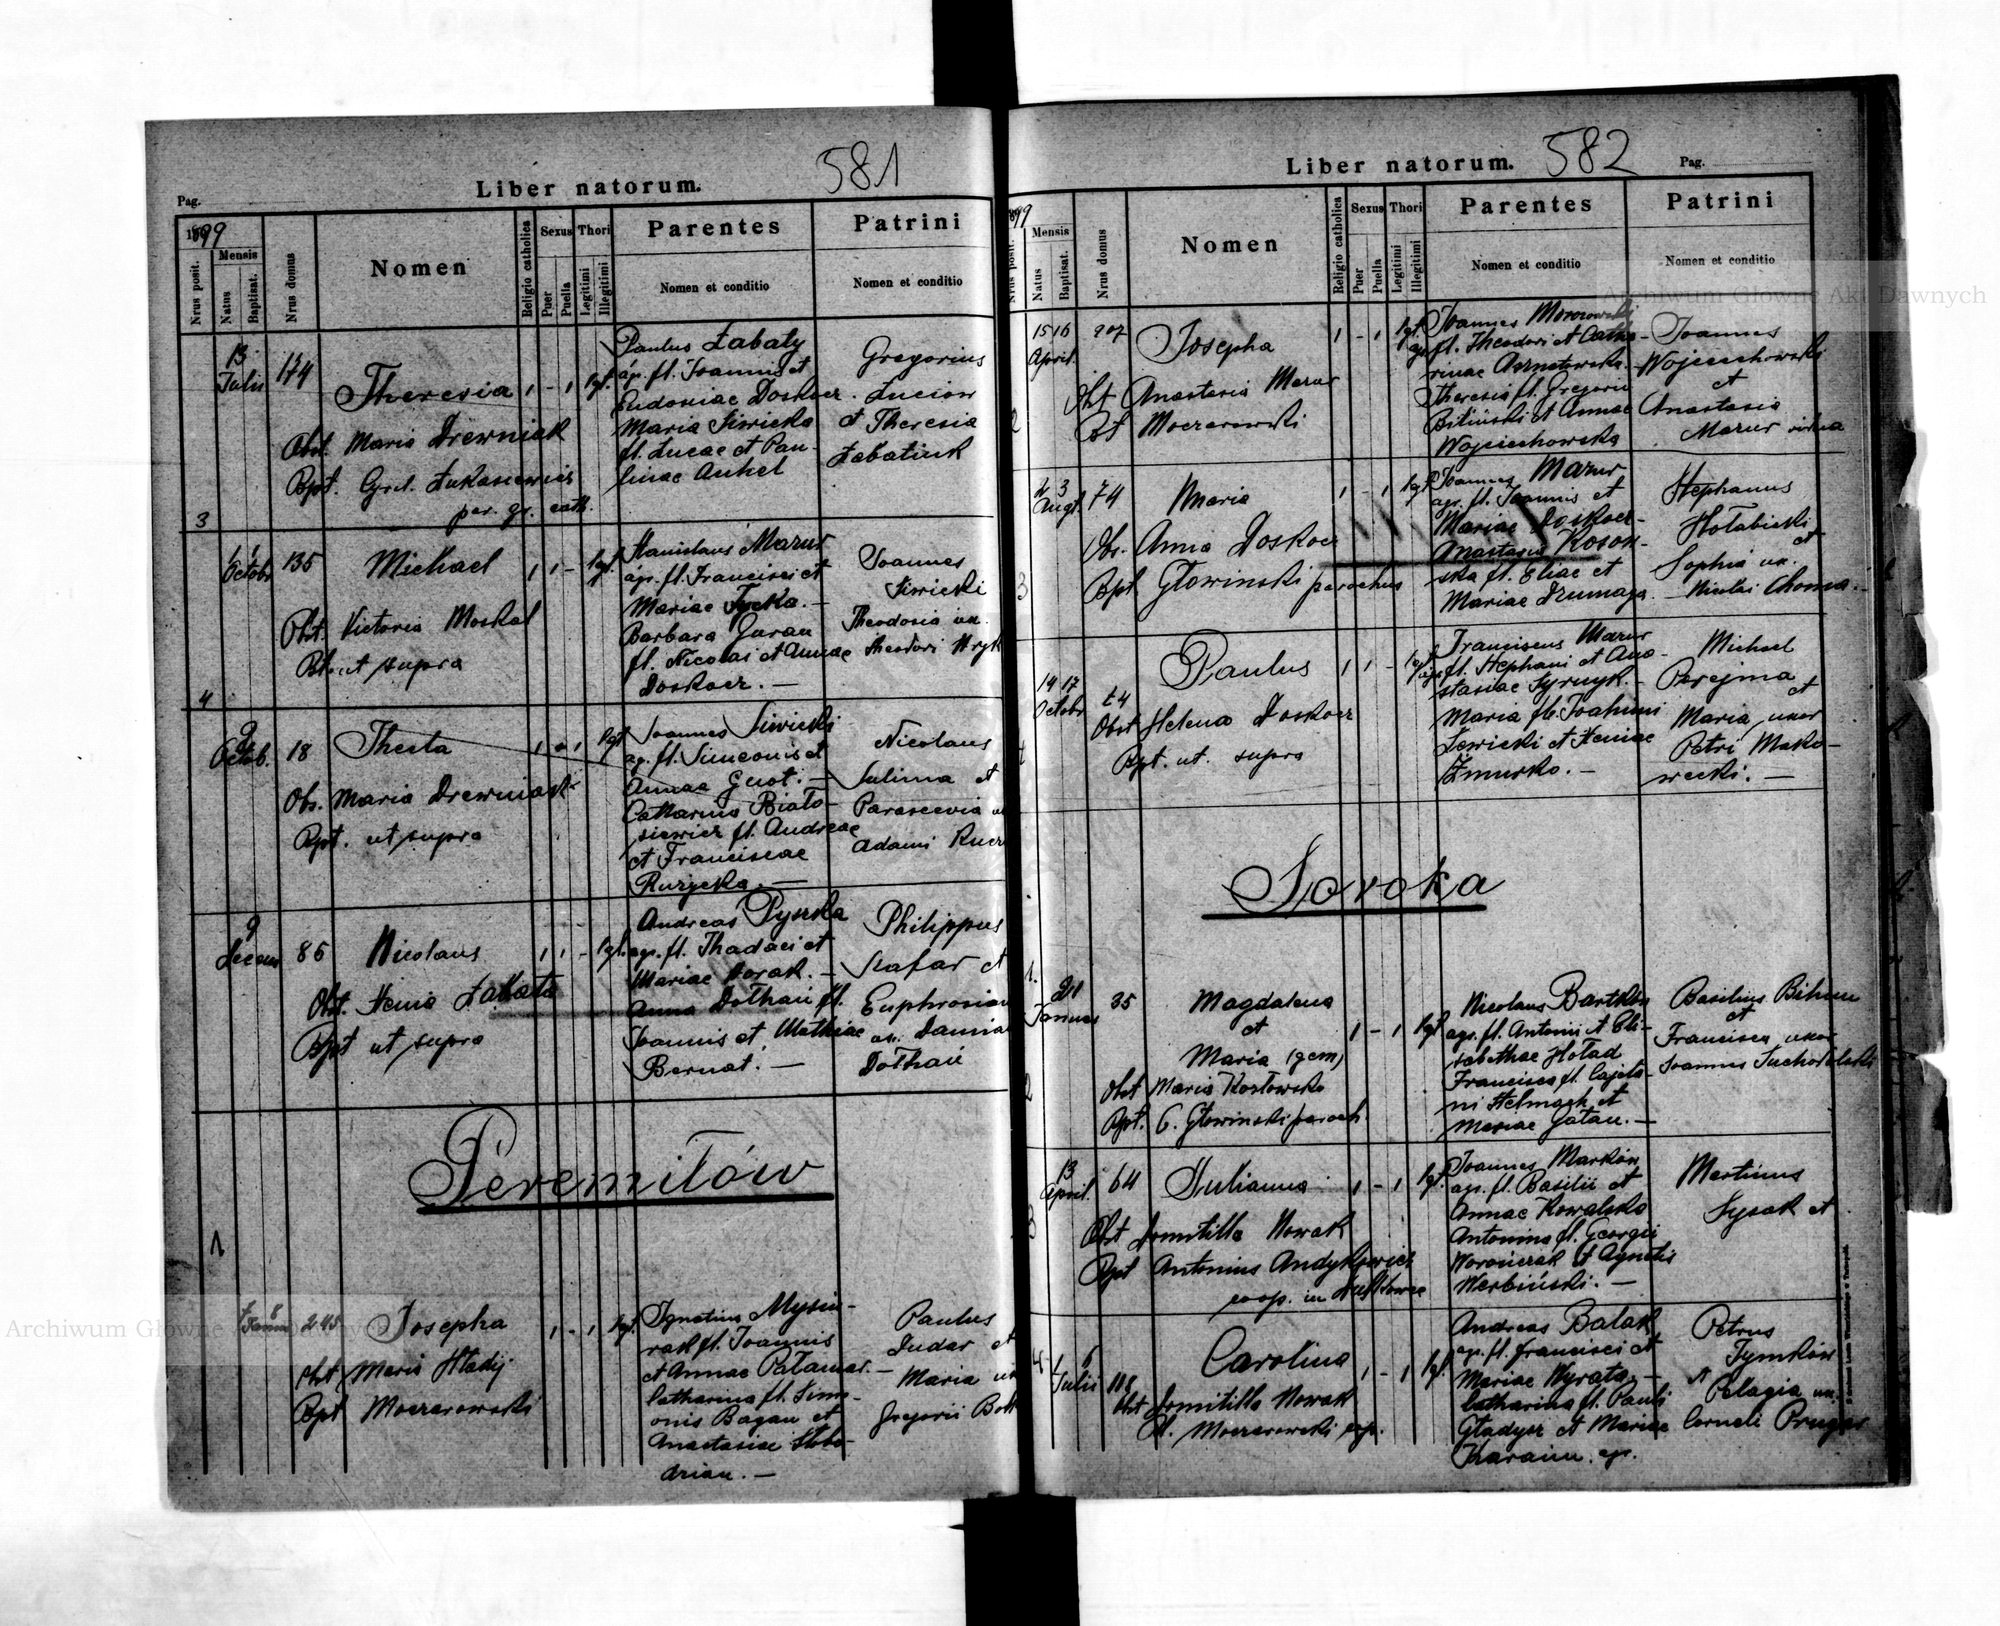 581
Liber natorum.
Pag.
1899
Nrus posit.
Mensis
Natus
Baptisat.
Nrus domus
Nomen
Religio catholica
Sexus
Puer
Puella
Thori
Legitimi
Illegitimi
Parentes
Nomen et conditio
Patrini
Nomen et conditio
13
Julii
174
Theresia
1 - 1 lgt.
Obst. Maria Drewniak
Bpt. Gr.
par. gr. cath.
Paulus Łabaty
agr. fl. Joannis et
Eudoxiae Doskocz.
Maria Siwicka
fl. Lucae et Pau-
linae Ankel
Gregorius
Luciow
et Theresia
Łabatiuk
3
1
Octobr
135
Michael
1 1 - lgt.
Obst. Victoria Moskal
Bt. ut supra
Stanislaus Mazur
agr. fl. Francisci et
Mariae
Barbara Guran
fl. Nicolai et Annae
Doskocz. —
Joannes
Siwicki
Theodosia ux.
Theodori Hryk
4
9
Octob.
18
Thecla
1 - 1 lgt
Obs. Maria Drewniak
Bpt. ut supra
Joannes Siwicki
agr. fl. Simeonis et
Annae —
Catharina Biało-
siewicz fl. Andreae
et Franciscae
Rużycka. —
Nicolaus
Sulima et
Parascevia
Adami
9
Decem
85
Nicolaus
1 1 - lgt.
Obst. Xenia Łabata
Bpt ut supra
Andreas Pyszka
agr. fl. Thadaei et
Mariae Worak. —
Anna Dołhań fl.
Joannis et Mathiae
Bernat. —
Philippus
Szafar et
Euphrosina
ux. Damia
Dołhań
Peremiłów
1
7 8
Januar
245
Josepha
1 - 1 lgt.
Obst Maria Hładij
Bpt Moczarowski
Ignatius Mysin-
rak fl. Joannis
et Annae Pałamar. —
Catharina fl. Sime-
onis Bagan et
Anastasiae Słobo-
drian. —
Paulus
Dudar et
Maria ux
Gregorii
582
Liber natorum.
Pag.
99
Nrus posit.
Mensis
Natus
Baptisat.
Nrus domus
Nomen
Religio catholica
Sexus
Puer
Puella
Thori
Legitimi
Illegitimi
Parentes
Nomen et conditio
Patrini
Nomen et conditio
15 16
April.
207
Josepha
1 - 1 lgt
Obst Anastasia Mazur
Bt Moczarowski
Joannes Morozowski
agr. fl. Theodori et Catha-
rinae
Theresia fl. Gregorii
Biliński et Annae
Wojciechowska
Joannes
Wojciechowski
et
Anastasia
Mazur vidua
2
2 3
Augt.
74
Maria
1 - 1 lgt
Obs. Anna Doskocz
Bpt Głowinski parochus
Joannes Mazur
agr. fl. Joannis et
Mariae Doskocz-
Anastasia Koson-
ska fl. Eliae et
Mariae Drumaga.
Stephanus
Hołabicki
et
Sophia ux.
Nicolai Choma.
3
14 17
Octobr
24
Paulus
1 1 - lgt
Obst Helena Doskocz
Bpt. ut. supra
Franciscus Mazur
agr. fl. Stephani et Ana-
stasiae Syrnyk. —
Maria fl. Joahimi
Lewicki et Xeniae
Żmurko. —
Michael
Perejma
et
Maria uxor
Petri Mako-
wecki. —
Soroka
1.
21
Januar
35
Magdalena
et
Maria (gem)
1 - 1 lgt
Obst Maria Kozłowska
Bpt. C. Głowinski paroch
Nicolaus Bartków
agr. fl. Antonii et Eli-
sabethae Hoład
Francisca fl. Cajeta-
ni Stelmach et
Mariae Gałan. —
Basilius Bihun
et
Francisca uxor
Joannis Suchodolski
2
13
April.
64
Julianna
1 - 1 lgt
Obst Domitilla Nowak
Bpt Antonius
coop. in
Joannes Marków
agr. fl. Basilii et
Annae Kowalska
Antonina fl. Georgii
Worończak et Agnetis
Werbiński. —
Martinus
Sysak et
3
4
6
Julii
118
Carolina
1 - 1 lgt
Obst Domitilla Nowak
Bt. Moczarowski exp.
Andreas Balak
agr. fl. Francisci et
Mariae Wyrata —
Catharina fl. Pauli
Gładysz et Mariae
Karaim. agr.
Petrus
Tymków
et Pelagia ux.
Corneli Prugar
Archiwum Główne Akt Dawnych
Archiwum Główne Akt Dawnych